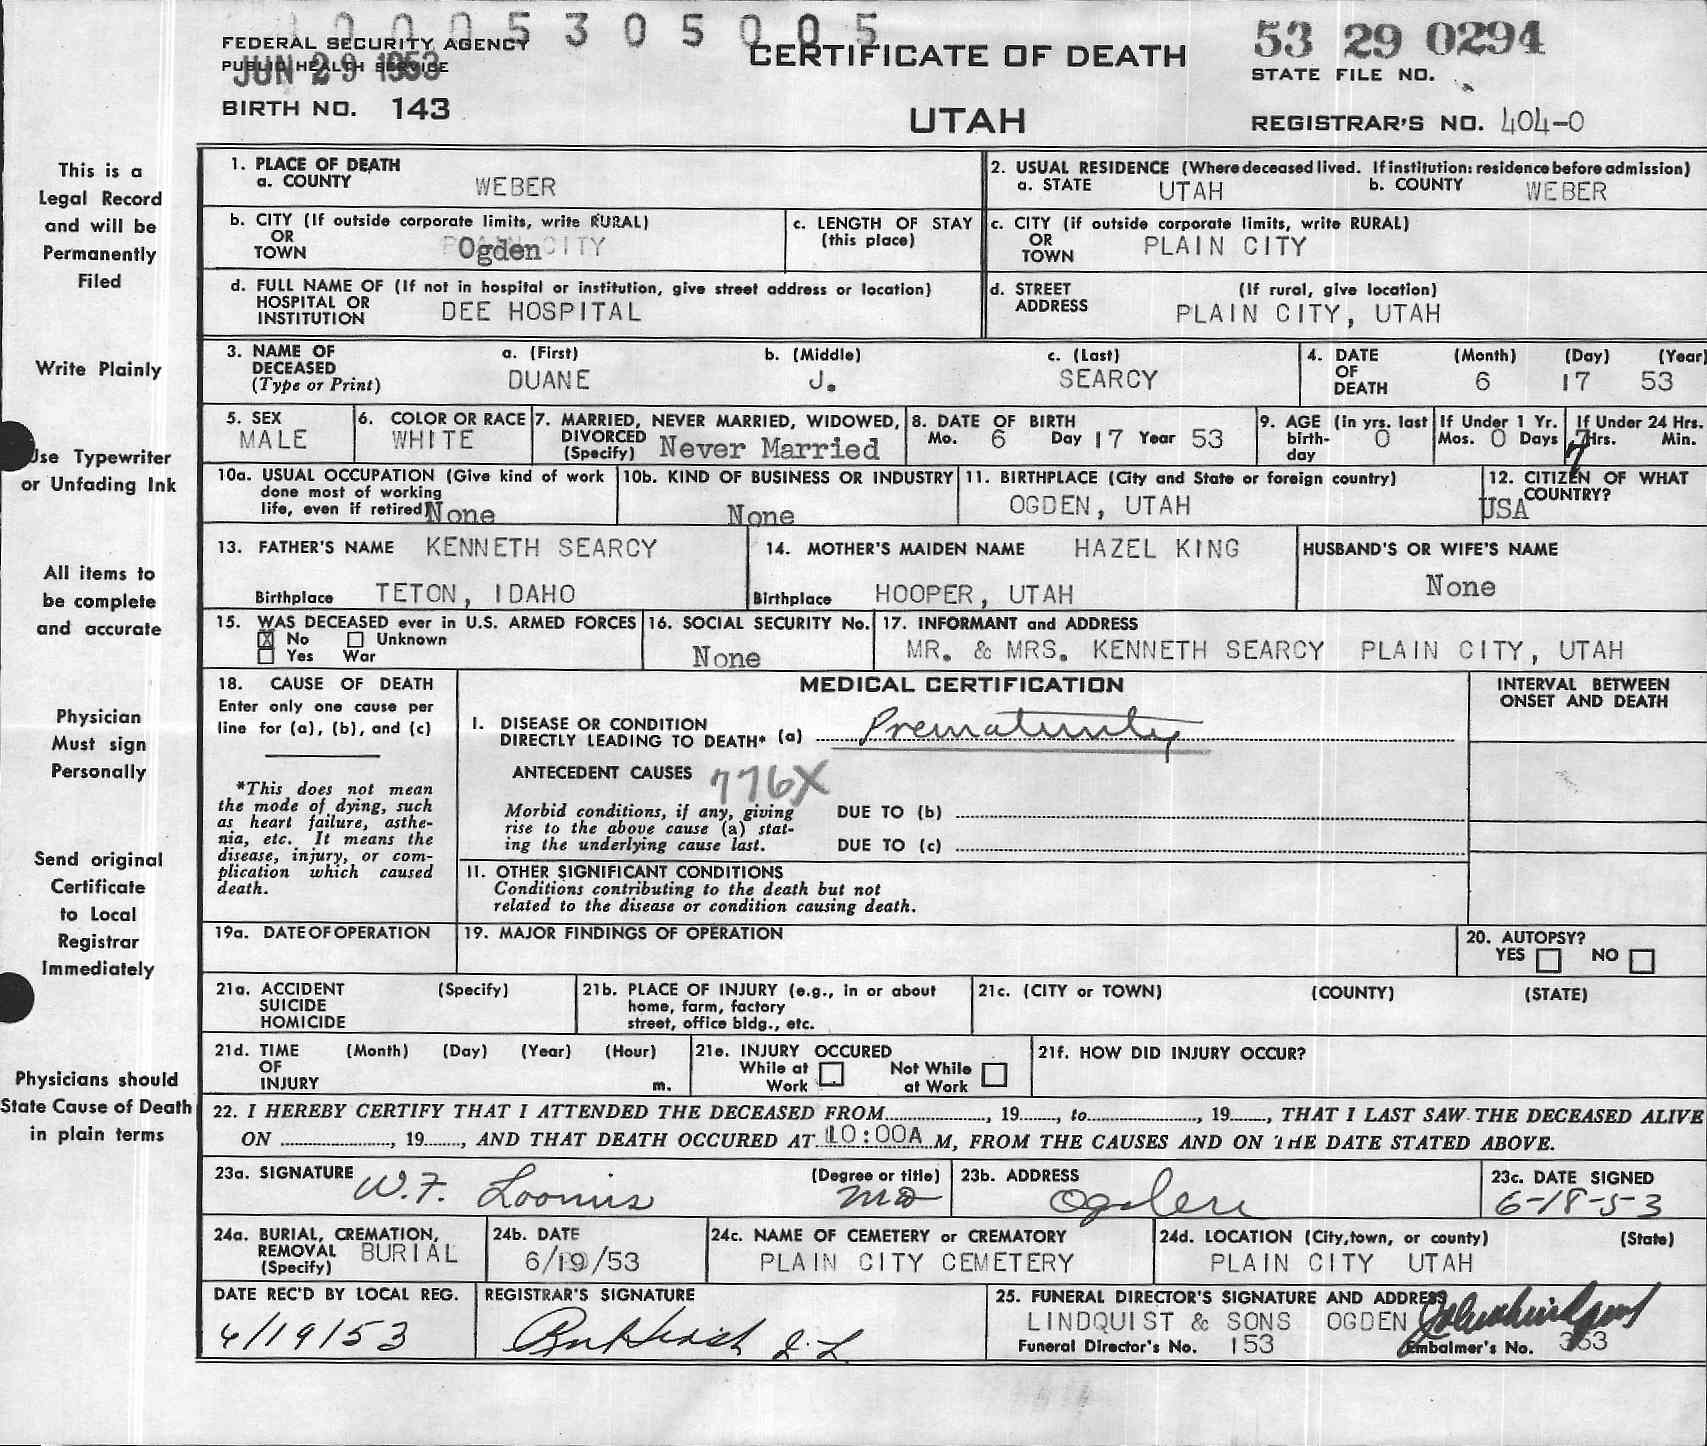 0005305005
FEDERAL SECURITY AGENCY
PUBLIC HEALTH SERVICE
JUN 29 1953
BIRTH NO. 143
CERTIFICATE OF DEATH
UTAH
53 29 0294
STATE FILE NO.
REGISTRAR'S NO. 404-0
This is a
Legal Record
and will be
Permanently
Filed
Write Plainly
Use Typewriter
or Unfading Ink
All items to
be complete
and accurate
Physician
Must sign
Personally
Send original
Certificate
to Local
Registrar
Immediately
Physicians should
State Cause of Death
in plain terms
1. PLACE OF DEATH
a. COUNTY WEBER
2. USUAL RESIDENCE (Where deceased lived. If institution: residence before admission)
a. STATE UTAH b. COUNTY WEBER
b. CITY (If outside corporate limits, write RURAL)
OR
TOWN Ogden
c. LENGTH OF STAY
(this place)
c. CITY (if outside corporate limits, write RURAL)
OR
TOWN PLAIN CITY
d. FULL NAME OF (If not in hospital or institution, give street address or location)
HOSPITAL OR
INSTITUTION DEE HOSPITAL
d. STREET (If rural, give location)
ADDRESS PLAIN CITY, UTAH
3. NAME OF
DECEASED
(Type or Print)
a. (First) b. (Middle) c. (Last)
DUANE J. SEARCY
4. DATE
OF
DEATH
(Month) (Day) (Year)
6 17 53
5. SEX
MALE
6. COLOR OR RACE
WHITE
7. MARRIED, NEVER MARRIED, WIDOWED,
DIVORCED
(Specify) Never Married
8. DATE OF BIRTH
Mo. 6 Day 17 Year 53
9. AGE (in yrs. last
birth-
day 0
If Under 1 Yr.
Mos. 0 Days
If Under 24 Hrs.
7 Hrs. Min.
7
10a. USUAL OCCUPATION (Give kind of work
done most of working
life, even if retired) None
10b. KIND OF BUSINESS OR INDUSTRY
None
11. BIRTHPLACE (City and State or foreign country)
OGDEN, UTAH
12. CITIZEN OF WHAT
COUNTRY?
USA
13. FATHER'S NAME KENNETH SEARCY
Birthplace TETON, IDAHO
14. MOTHER'S MAIDEN NAME HAZEL KING
Birthplace HOOPER, UTAH
HUSBAND'S OR WIFE'S NAME
None
15. WAS DECEASED ever in U.S. ARMED FORCES
X No Unknown
Yes War
16. SOCIAL SECURITY No.
None
17. INFORMANT and ADDRESS
MR. & MRS. KENNETH SEARCY PLAIN CITY, UTAH
18. CAUSE OF DEATH
Enter only one cause per
line for (a), (b), and (c)
*This does not mean
the mode of dying, such
as heart failure, asthe-
nia, etc. It means the
disease, injury, or com-
plication which caused
death.
MEDICAL CERTIFICATION
I. DISEASE OR CONDITION
DIRECTLY LEADING TO DEATH* (a) Prematurity
ANTECEDENT CAUSES 776X
Morbid conditions, if any, giving
rise to the above cause (a) stat-
ing the underlying cause last.
DUE TO (b)
DUE TO (c)
II. OTHER SIGNIFICANT CONDITIONS
Conditions contributing to the death but not
related to the disease or condition causing death.
INTERVAL BETWEEN
ONSET AND DEATH
19a. DATE OF OPERATION
19. MAJOR FINDINGS OF OPERATION
20. AUTOPSY?
YES NO
21a. ACCIDENT (Specify)
SUICIDE
HOMICIDE
21b. PLACE OF INJURY (e.g., in or about
home, farm, factory
street, office bldg., etc.
21c. (CITY or TOWN) (COUNTY) (STATE)
21d. TIME (Month) (Day) (Year) (Hour)
OF
INJURY m.
21e. INJURY OCCURED
While at Not While
Work at Work
21f. HOW DID INJURY OCCUR?
22. I HEREBY CERTIFY THAT I ATTENDED THE DECEASED FROM, 19, to, 19, THAT I LAST SAW THE DECEASED ALIVE
ON, 19, AND THAT DEATH OCCURED AT 10:00A M, FROM THE CAUSES AND ON THE DATE STATED ABOVE.
23a. SIGNATURE W.F. Loomis (Degree or title) MD
23b. ADDRESS
Ogden
23c. DATE SIGNED
6-18-53
24a. BURIAL, CREMATION,
REMOVAL BURIAL
(Specify)
24b. DATE
6/19/53
24c. NAME OF CEMETERY or CREMATORY
PLAIN CITY CEMETERY
24d. LOCATION (City, town, or county) (State)
PLAIN CITY UTAH
DATE REC'D BY LOCAL REG.
6/19/53
REGISTRAR'S SIGNATURE
25. FUNERAL DIRECTOR'S SIGNATURE AND ADDRESS
LINDQUIST & SONS OGDEN
Funeral Director's No. 153 Embalmer's No. 363